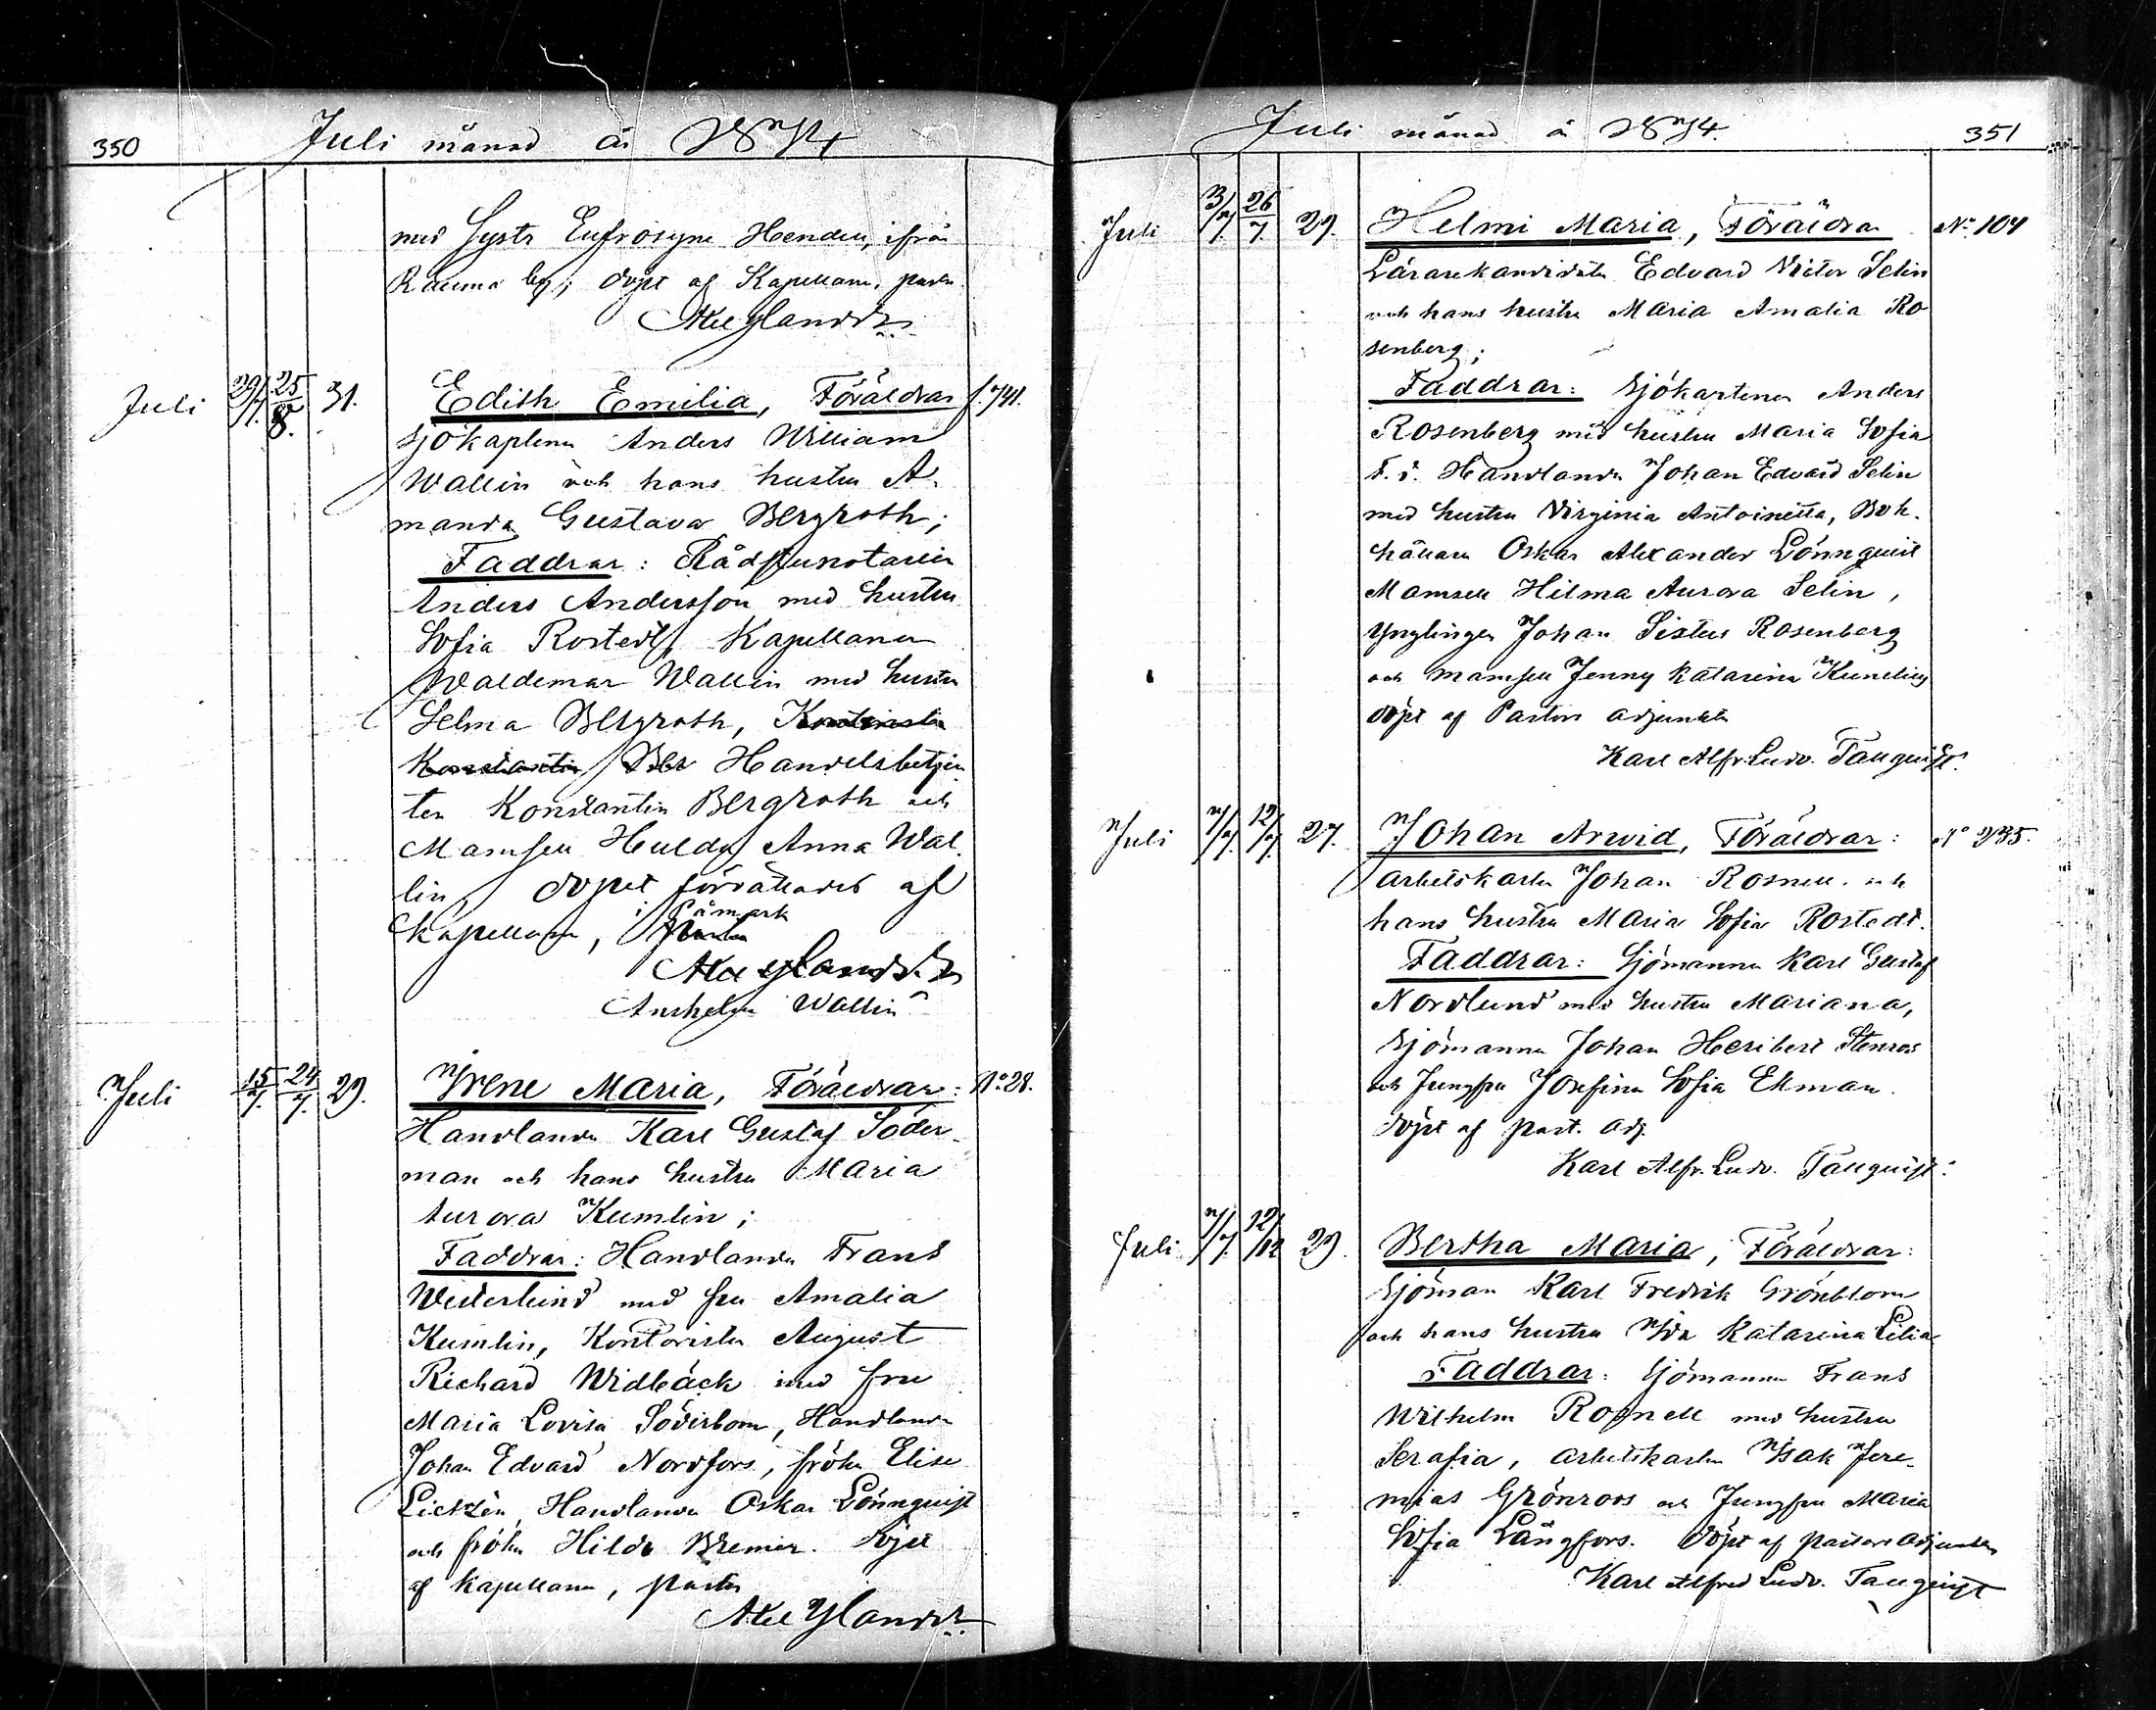 350
Juli månad år 1874
med Systr Eufrosyne Hendell, ifrån
Rauma by; döpt af Kapellanen, pastor
Ylander
Juli 29/7. 25/8. 31. Edith Emilia, Föräldrar f. 741.
sjökaptenen Anders William
Wallin och hans hustru A-
manda Gustava Bergroth;
Faddrar: Rådstunotarien
Anders Andersson med hustru
Sofia Rostedt, Kapellanen
Waldemar Wallin med hustru
Selma Bergroth,
Konstantin Handelsbetjen
ten Konstantin Bergroth och
Mamsell Hulda Anna Wal
lin, dopet förrättades af
i Påmark
Kapellanen,
Ylander
Anshelm Wallin
Juli 15/7. 24/7. 29. Irene Maria, Föräldrar: No 28.
Handlanden Karl Gustaf Söder-
man och hans hustru Maria
Aurora Kumlin;
Faddrar: Handlanden Frans
Westerlund med fru Amalia
Kumlin, Kontoristen August
Richard Widbäck med fru
Maria Lovisa Söderbom, Handlanden
Johan Edvard Nordfors, fröken Elise
Handlanden Oskar Lönnquist
och fröken Hilda Bremer. döpt
af Kapellanen, pastor
Ylander
Juli månad å 1874.
351
Juli 3/7. 26/7. 29. Helmi Maria, Föräldrar No 104
Lärarekandidaten Edvard Victor Selin
och hans hustru Maria Amalia Ro
senberg;
Faddrar: Sjökaptenen Anders
Rosenberg med hustru Maria Sofia
F. d. Handlanden Johan Edvard Selin
med hustru Virginia Antoinetta, Bok-
hållaren Oskar Alexander Lönnquist
Mamsell Hilma Aurora Selin,
Ynglingen Johan Sixtus Rosenberg
och Mamsell Jenny Katarina
döpt af Pastors adjunkten
Karl Alfr. Ludv. Tanquist.
Juli 7/7. 12/7. 27. Johan Arvid, Föräldrar: No 235.
arbetskarlen Johan Rosnell och
hans hustru Maria Sofia Rostedt.
Faddrar: Sjömannen Karl Gustaf
Nordlund med hustru Mariana,
Sjömannen Johan Heribert Stenros
och Jungfru Josefina Sofia Ekman.
döpt af past. adj.
Karl Alfr. Ludv. Tanquist.
Juli 7/7. 12/12 29. Bertha Maria, Föräldrar:
Sjöman Karl Fredrik Grönblom
och hans hustru Ida Katarina Lilia
Faddrar: Sjömannen Frans
Wilhelm Rosnell med hustru
Serafia, arbetskarlen Isak Jere-
mias Grönroos och Jungfru Maria
Sofia Långfors. döpt af pastors adjunkten
Karl Alfred Ludv. Tanquist